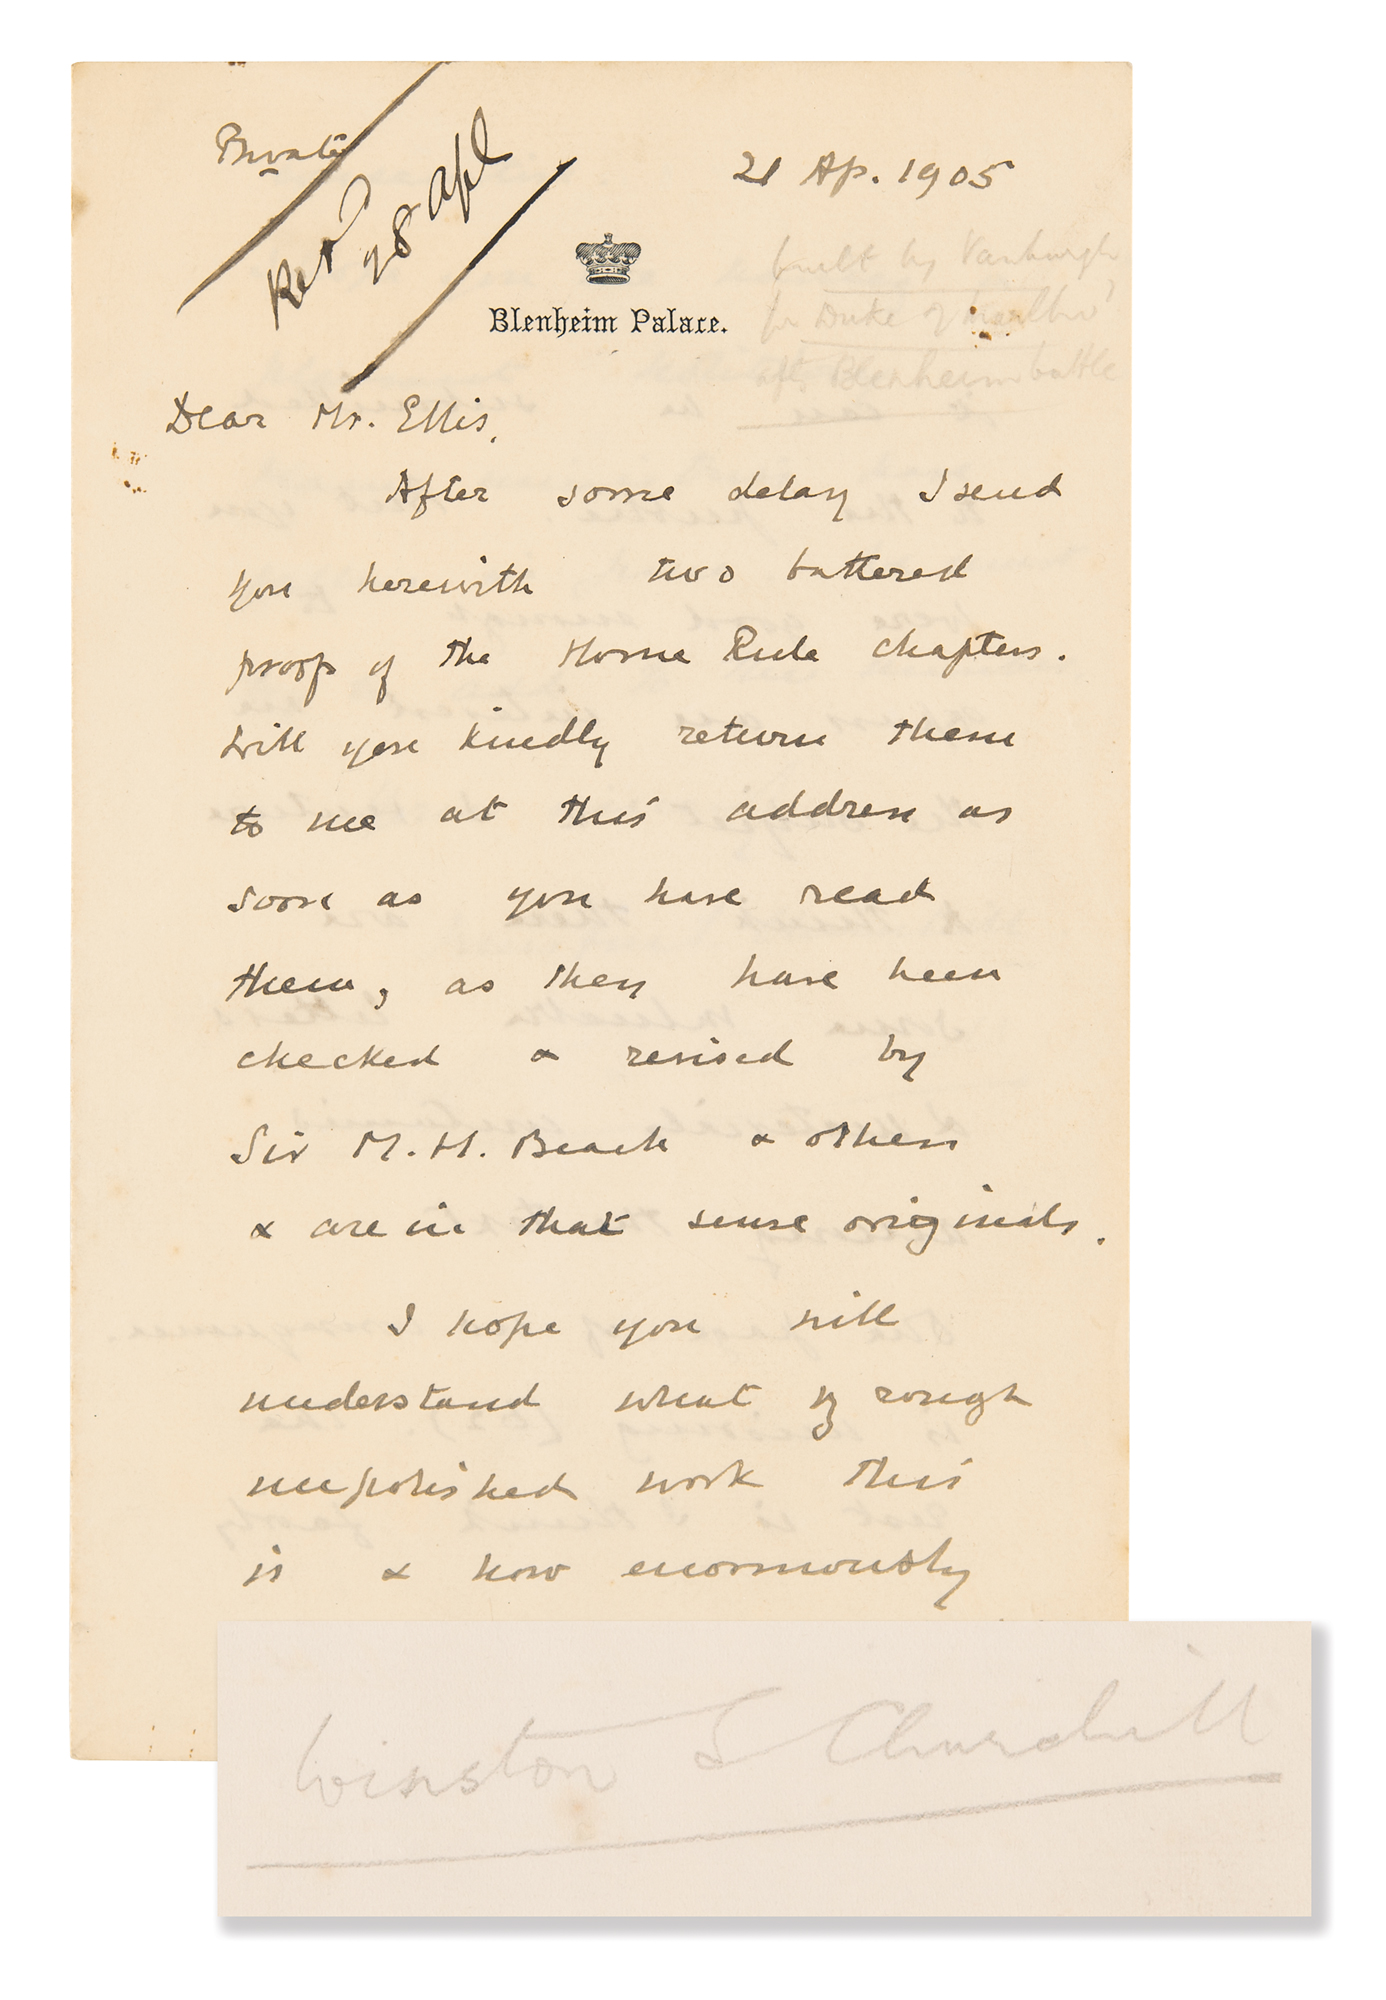 Private
21 Ap. 1905
Retd
28 Apl
built by Vanburgh
for Duke of Marlbro'
after Blenheim battle
Blenheim Palace.
Dear Mr. Ellis,
After some delay I send
you herewith two battered
proofs of the Home Rule chapters.
Will you kindly return them
to me at this address as
soon as you have read
them, as they have been
checked & revised by
Sir M. H. Beach & others
& are in that sense originals.
I hope you will
understand what rough
unpolished work this
is & how enormously
Winston S Churchill